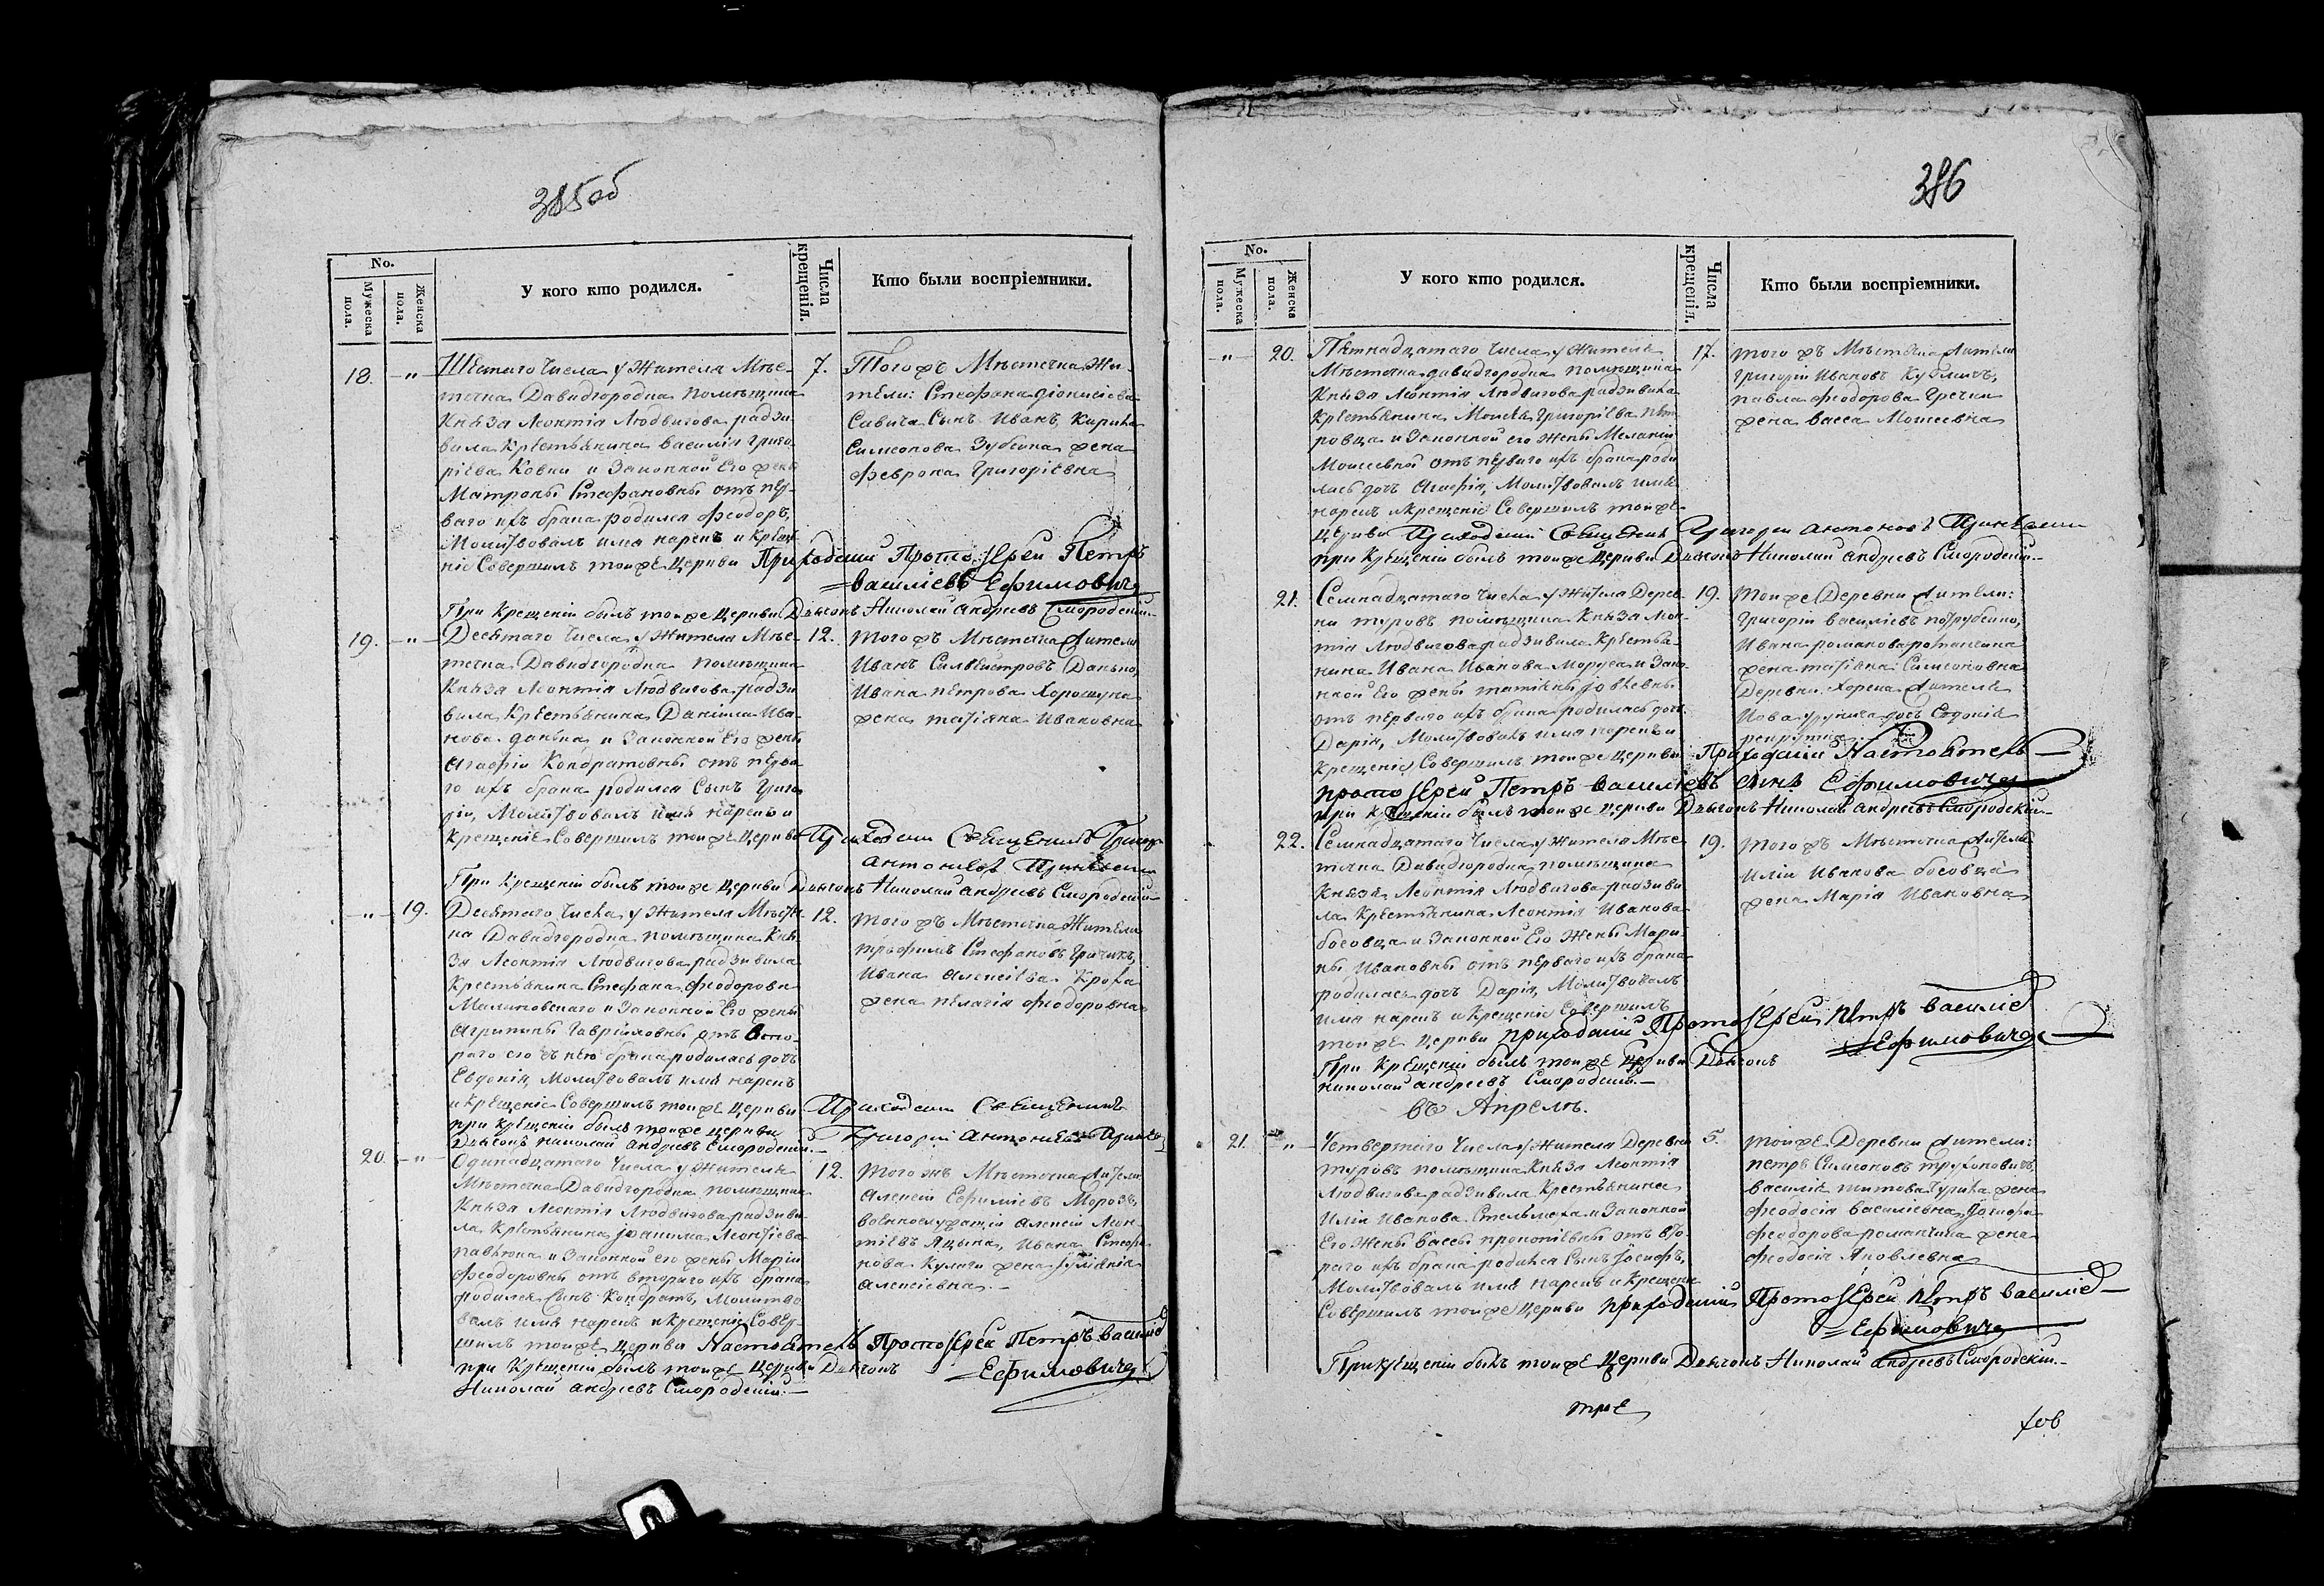 385об
No.
Мужеска пола.
Женска пола.
У кого кто родился.
Числа крещенія.
Кто были воспріемники.
18. —"— Шестаго числа у жителя Мѣс-
течка Давидгородка помѣщика
Князя Леонтія Людвигова Радзи-
вила крестьянина Василія Григо-
ріева Ковни и законной его жены
Матроны Стефановны отъ пер-
ваго ихъ брака родился Феодоръ,
Молитвовалъ имя нарекъ и креще-
ніе Совершилъ тойже Церкви Приходскій Протоіерей Петръ
Василіевъ Ефимовичъ
При Крещеніи былъ тойже Церкви Дьячокъ Николай Андреевъ Смородскій.—
7. Тогожъ Мѣстечка жи-
тели: Стефана Діонисіева
Савича Сынъ Иванъ, Кирика
Симеонова Зубеина жена
Феврона Григоріевна
19. —"— Десятаго числа у жителя Мѣс-
течка Давидгородка помѣщика
Князя Леонтія Людвигова Радзи
вила Крестьянина Даніила Ива-
нова Данька и Законной Его жены
Агафіи Кондратовны отъ перва-
го ихъ брака родился Сынъ Григо-
рій, Молитвовалъ имя нарекъ и
крещеніе Совершилъ тойже Церкви Приходскій Священникъ Григорій
Антоніевъ
При Крещеніи былъ тойже Церкви Дьячокъ Николай Андреевъ Смородскій—
12. Тогожъ Мѣстечка жители
Иванъ Силвестровъ Данько,
Ивана Петрова Хорошуна
жена Татіяна Ивановна
—"— 19. Десятаго числа у жителя Мѣстеч-
ка Давидгородка помѣщика Кня-
зя Леонтія Людвигова Радзивила
Крестьянина Стефана Феодорова
Малиновскаго и Законной Его жены
Агрипины Гавріиловны отъ вто-
раго его съ нею брака родилась дочь
Евдокія, Молитвовалъ имя нарекъ
и Крещеніе Совершилъ тойже Церкви Приходскій Священникъ
Григорій Антоніевъ
при Крещеніи былъ тойже Церкви
Дьячокъ Николай Андреевъ Смородскій.—
12. Тогожъ Мѣстечка Жители
Трофимъ Стефановъ Гричикъ,
Ивана Алексіева Кроха
жена Пелагія Феодоровна
20. —"— Одинадцатаго числа у жителя
Мѣстечка Давидгородка помѣщика
Князя Леонтія Людвигова Радзиви-
ла Крестьянина Іоакима Леонтіева
Павлюка и Законной Его жены Маріи
Феодоровны отъ втораго ихъ брака
родился Сынъ Кондратъ, Молитво-
валъ имя нарекъ и крещеніе Совер-
шилъ тойже Церкви Настоятель Протоіерей Петръ Василіев
Ефимовичъ
при Крещеніи былъ тойже Церкви Дьячокъ
Николай Андреевъ Смородскій.—
12. Тогожъ Мѣстечка жители
Алексій Ефиміевъ Морозъ,
военнослужащій Алексій Леон-
тіевъ Яцына, Ивана Стефа-
нова Кулаги жена Іуліянія
Алексіевна.—
386
No.
Мужеска пола.
Женска пола.
У кого кто родился.
Числа крещенія.
Кто были воспріемники.
—"— 20. Пятнадцатаго числа у жителя
Мѣстечка Давидгородка помѣщика
Князя Леонтія Людвигова Радзивила
Крестьянина Моисея Григоріева Пет-
ровца и Законной его жены Меланіи
Моисеевной отъ перваго ихъ брака роди
лась дочь Агафія, Молитвовалъ имя
нарекъ и крещеніе Совершилъ тойже
Церкви Приходскій Священникъ Григорій Антоновъ
при Крещеніи былъ тойже Церкви Дьячокъ Николай Андреевъ Смородскій.—
17. Тогожъ Мѣстечка жители
Григорій Ивановъ Кузмичъ,
Павла Феодорова Гречки
жена Васса Моисеевна
21. Семнадцатаго числа у жителя Дерев-
ни Туровъ помѣщика Князя Леон-
тія Людвигова Радзивила Крестья-
нина Ивана Иванова Моруса и Зако-
нной Его жены Татіяны Іовлевны
отъ перваго ихъ брака родилась дочь
Дарія, Молитвовалъ имя нарекъ и
крещеніе Совершилъ тойже Церкви Приходскій Настоятель
протоіерей Петръ Василіевъ сынъ Ефимовичъ
при Крещеніи былъ тойже Церкви Дьячокъ Николай Андреевъ Смородскій—
19. Тойже Деревни жители:
Григорій Василіевъ
Ивана Романова
жена Татіяна Симеоновна
Деревни Хорска жителя
Іова дочь Евдокія
22. Семнадцатаго числа у жителя Мѣс-
течка Давидгородка помѣщика
Князя Леонтія Людвигова Радзиви
ла Крестьянина Леонтія Иванова
Босовца и Законной Его жены Мари-
ны Ивановны отъ перваго ихъ брака
родилась дочь Дарія, Молитвовалъ
имя нарекъ и Крещеніе Совершилъ
тойже Церкви приходскій Протоіерей Петръ Василіев
Ефимовичъ
При Крещеніи былъ тойже Церкви Дьячокъ
Николай Андреевъ Смородскій.—
19. Тогожъ Мѣстечка жителя
Иліи Иванова Босовца
жена Марія Ивановна
въ Апрелѣ.
21. —"— Четвертаго числа у жителя Деревни
Туровъ помѣщика Князя Леонтія
Людвигова Радзивила Крестьянина
Иліи Иванова Стельмаха и Законной
Его жены Вассы Прокопіевны отъ вто-
раго ихъ брака родился Сынъ Іосифъ,
Молитвовалъ имя нарекъ и Крещеніе
Совершилъ тойже Церкви приходскій Протоіерей Петръ Василіев—
Ефимовичъ
При крещеніи былъ тойже Церкви Дьячокъ Николай Андреевъ Смородскій.—
5. Тойже Деревни жители:
Петръ Симеоновъ Трухоновичъ,
Василія Титова Чурила жена
Феодосія Василіевна,
Феодорова Романчика жена
Феодосія Яковлевна
трое